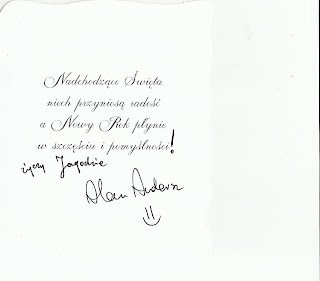 Nadchodzące Święta
niech przyniosą radość
a Nowy Rok płynie
w szczęściu i pomyślności!
życzy Jagodzie
Alan Andersz